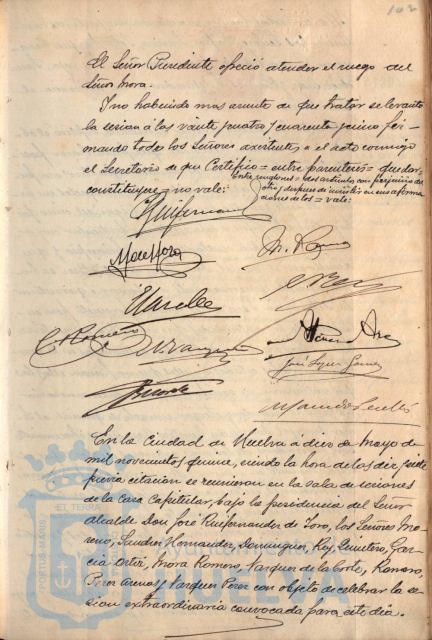 102
El Señor Presidente ofreció atender el ruego del
Señor Mora.
Y no habiendo mas asunto de que tratar se levantó
la sesion á las veinte y cuatro y cuarenta y cinco fir-
mando todos los Señores asistentes a el acto conmigo
el Secretario de que Certifico = entre parentesis = quedar
constituye = no vale:
Entre renglones = dos articulos con perjuicio de
otro y despues de insistir en sus afirma
ciones de los = vale:
José López Gómez
En la Ciudad de Huelva á diez de Mayo de
mil novecientos quince, siendo la hora de las diez y siete
previa citacion se reunieron en la sala de sesiones
de la Casa Capitular, bajo la presidencia del Señor
Alcalde Don José Ruifernandez de Toro, los Señores Mo-
reno, Sanchez Hernandez, Dominguez, Rey, Quintero, Gar-
cia Ortiz, Mora Romero, Vazquez de la Corte, Romero,
Perez Arenas y Vazquez Perez con objeto de celebrar la se-
sion extraordinaria convocada para este dia.
PORTUS MARIS
ET TERRÆ